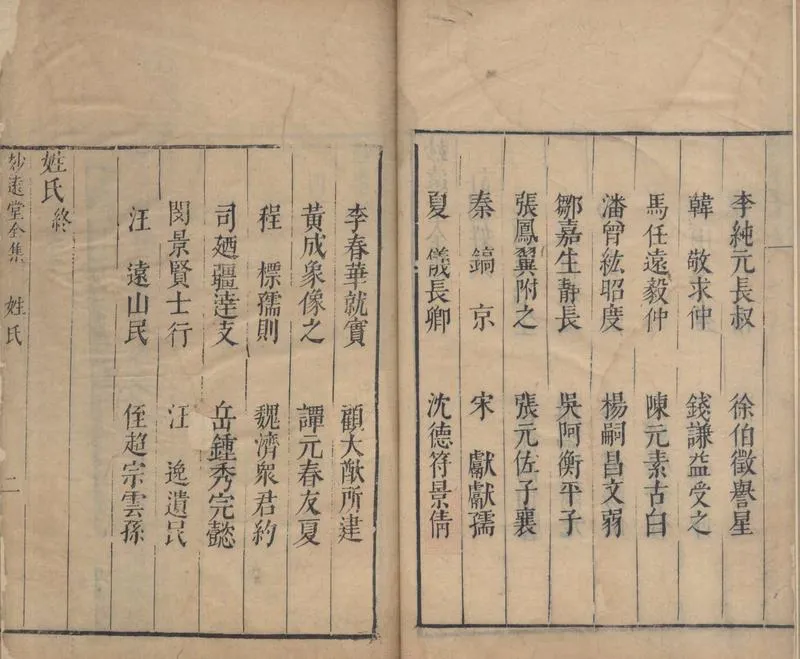 李純元長叔　徐伯徵譽星
韓　敬求仲　錢謙益受之
馬任遠毅仲　陳元素古白
潘曾紘昭度　楊嗣昌文弱
鄒嘉生靜長　吳阿衡平子
張鳳翼附之　張元佐子襄
秦鎬京　宋獻獻孺
夏儀長卿　沈德符景倩
李春華就實　顧大猷所建
黃成象像之　譚元春友夏
程　標孺則　魏濟眾君約
司廼疆逹支　岳鍾秀完懿
閔景賢士行　汪　逸遺民
汪　遠山民　侄超宗雲孫
姓氏終
妙遠堂全集　姓氏　二